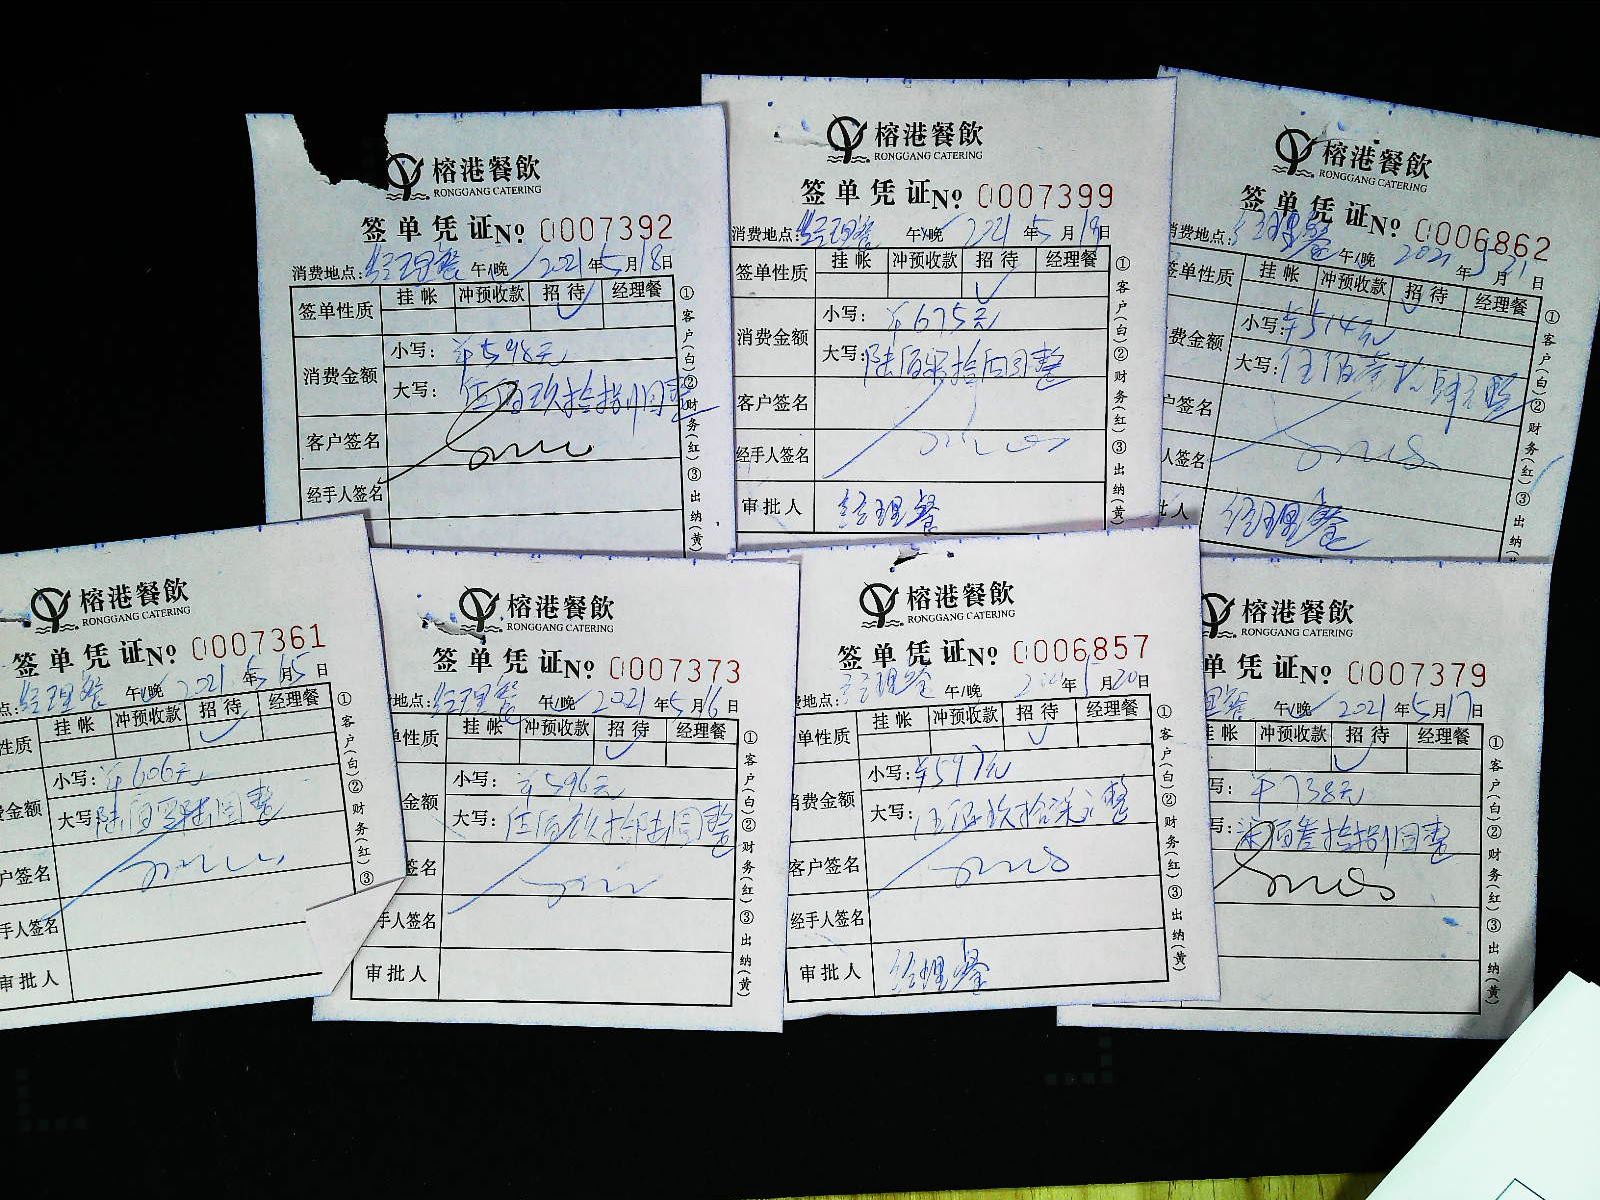 榕港餐飲
RONGGANG CATERING
签单凭证№ 0007392
消费地点:经理餐 午/晚 2021年5月18日
签单性质 挂帐 冲预收款 招待 经理餐
消费金额
小写: ¥598元
大写: 伍佰玖拾捌圆整
客户签名
经手人签名
①客户(白)②财务(红)③出纳(黄)
榕港餐飲
RONGGANG CATERING
签单凭证№ 0007399
消费地点:经理餐 午/晚 2021年5月19日
签单性质 挂帐 冲预收款 招待 经理餐
消费金额
小写: ¥675元
大写: 陆佰柒拾伍圆整
客户签名
经手人签名
审批人 经理餐
①客户(白)②财务(红)③出纳(黄)
榕港餐飲
RONGGANG CATERING
签单凭证№ 0006862
消费地点:经理餐 午/晚 2021年5月21日
单性质 挂帐 冲预收款 招待 经理餐
费金额
小写: ¥514元
大写:
户签名
人签名
批人 经理餐
①客户(白)②财务(红)③出纳
榕港餐飲
RONGGANG CATERING
签单凭证№ 0007361
点:经理餐 午/晚 2021年5月15日
性质 挂帐 冲预收款 招待 经理餐
费金额
小写: ¥606元
大写: 陆佰零陆圆整
户签名
手人签名
审批人
①客户(白)②财务(红)③
榕港餐飲
RONGGANG CATERING
签单凭证№ 0007373
地点:经理餐 午/晚 2021年5月16日
单性质 挂帐 冲预收款 招待 经理餐
金额
小写: ¥596元
大写: 伍佰玖拾陆圆整
签名
手人签名
审批人
①客户(白)②财务(红)③出纳(黄)
榕港餐飲
RONGGANG CATERING
签单凭证№ 0006857
地点:经理餐 午/晚 2021年5月20日
单性质 挂帐 冲预收款 招待 经理餐
消费金额
小写: ¥597元
大写: 伍佰玖拾柒元整
客户签名
经手人签名
审批人 经理餐
①客户(白)②财务(红)③出纳(黄)
榕港餐飲
RONGGANG CATERING
单凭证№ 0007379
理餐 午/晚 2021年5月17日
挂帐 冲预收款 招待 经理餐
写: ¥738元
写: 柒佰叁拾捌圆整
①客户(白)②财务(红)③出纳(黄)